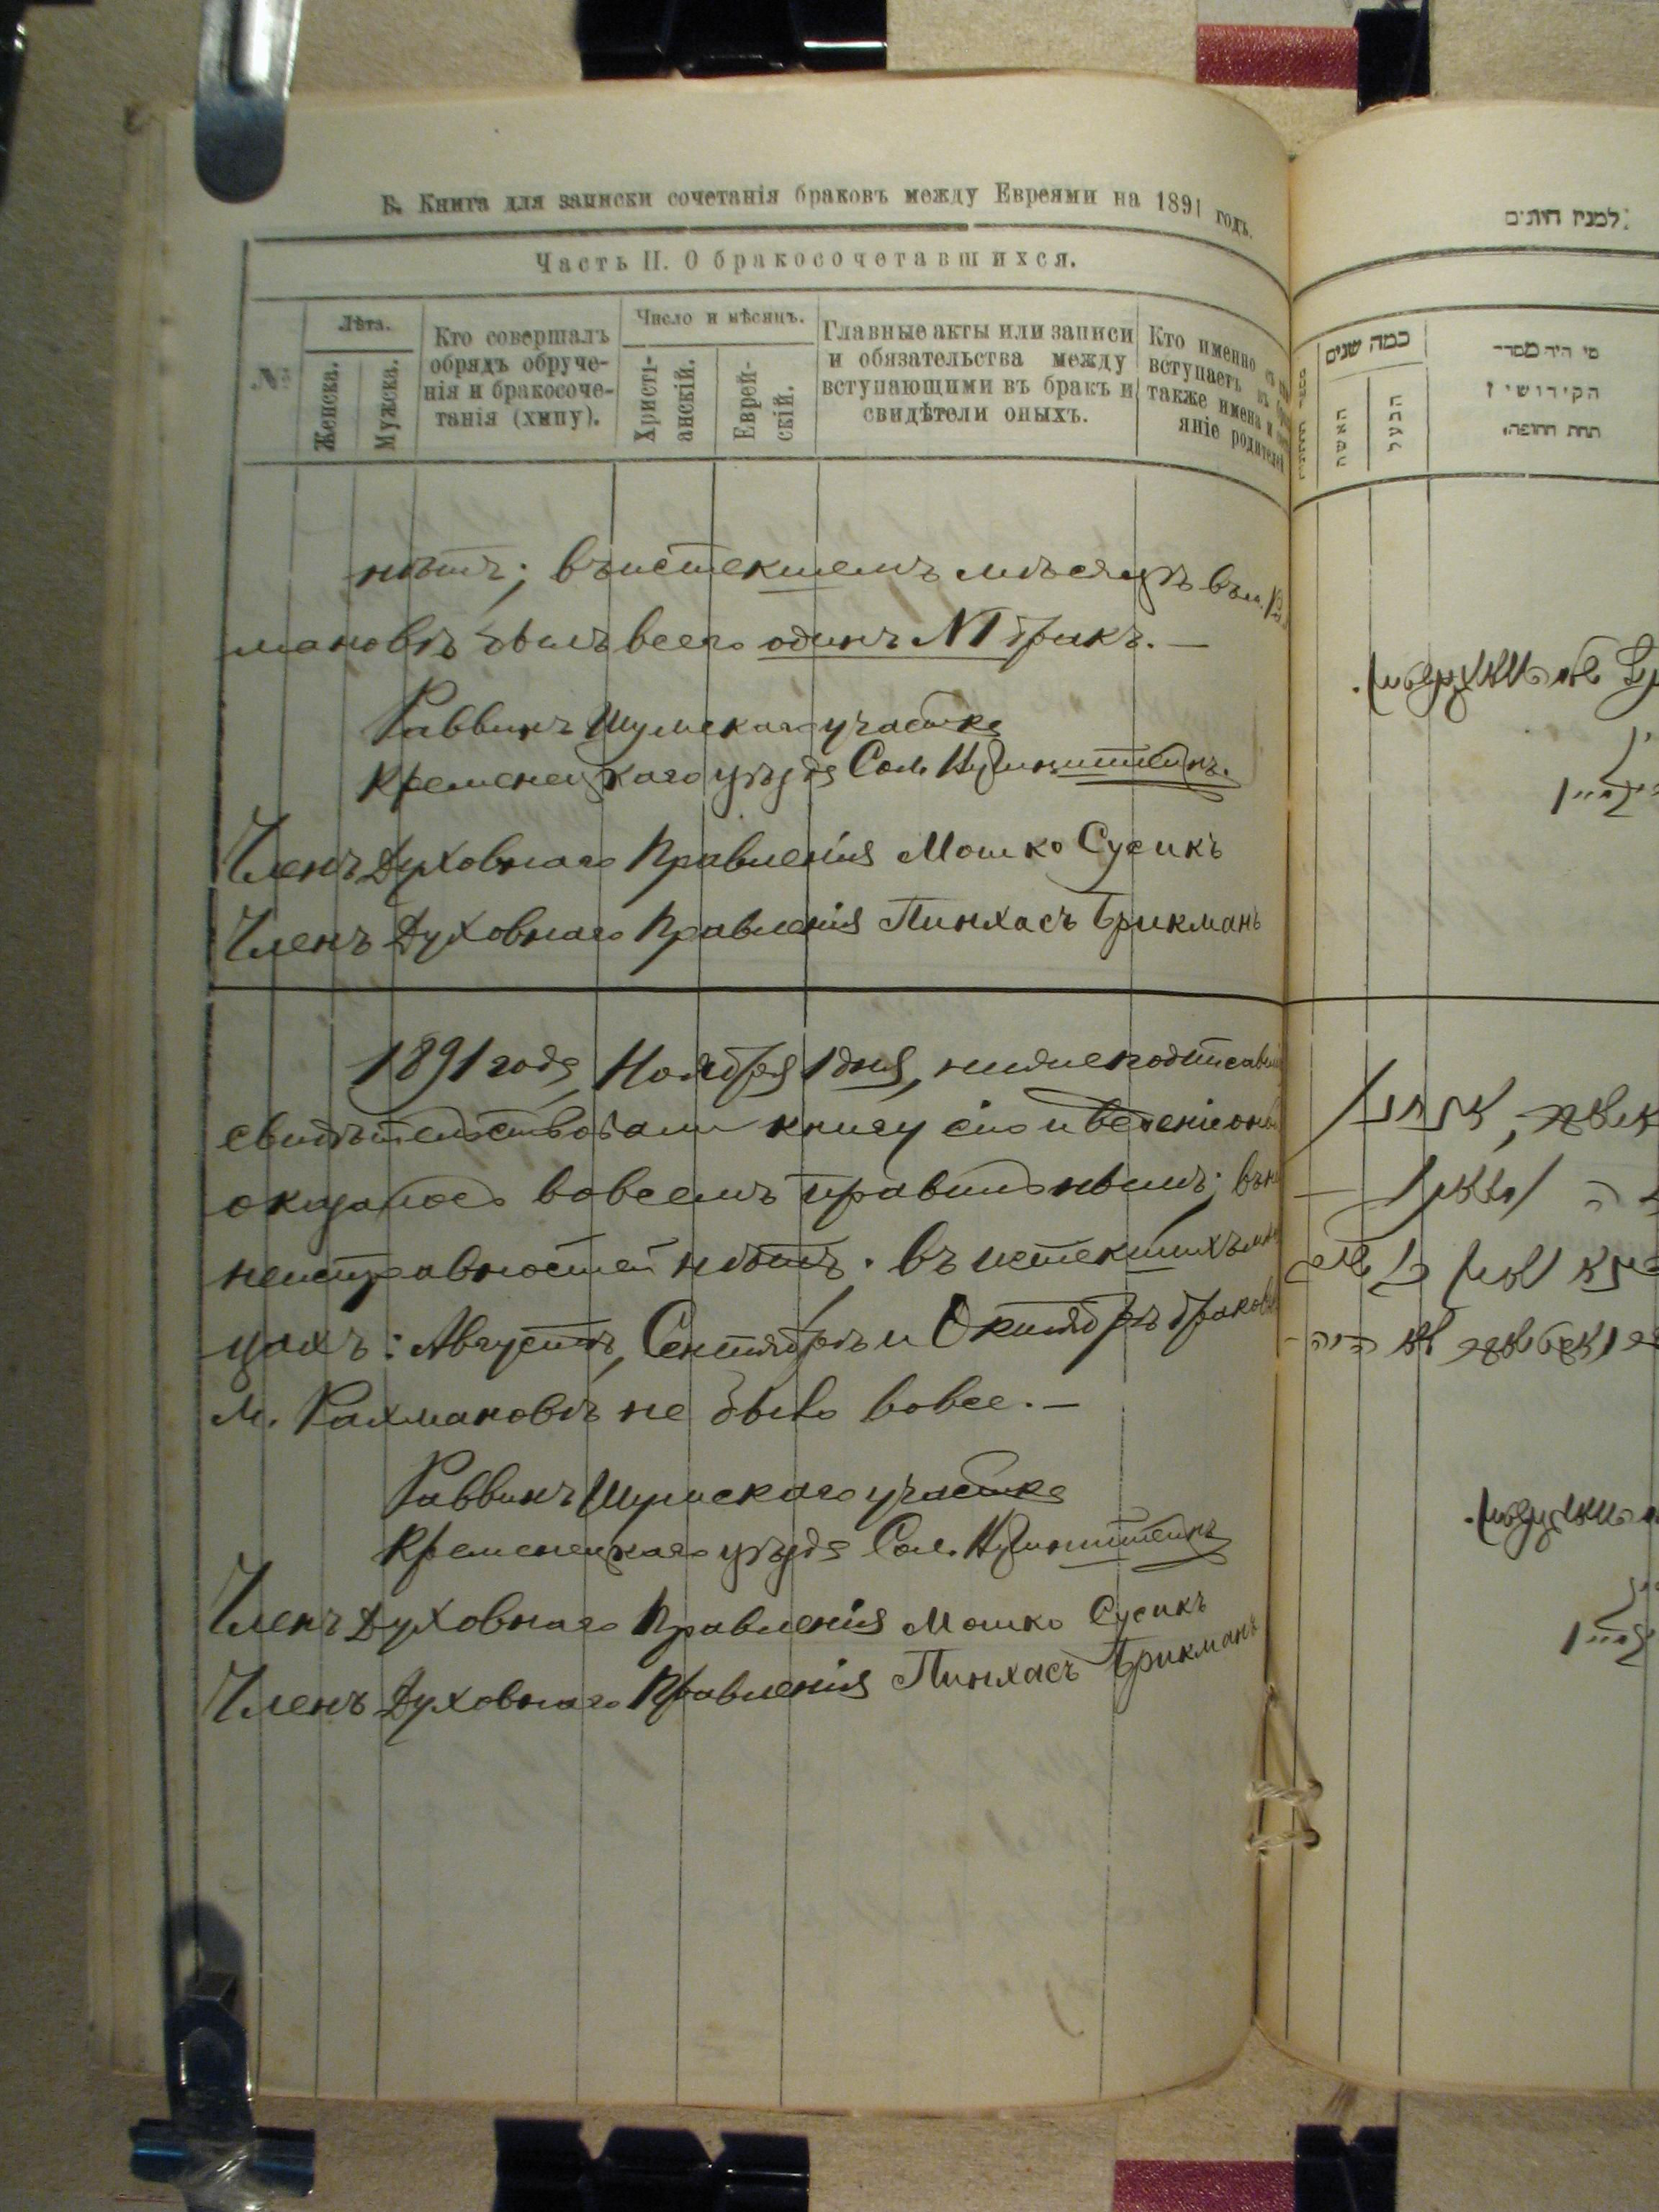 Б. Книга для записки сочетанія браковъ между Евреями на 1891 годъ.
Часть II. О бракосочетавшихся.
№
Лѣта.
Женска.
Мужска.
Кто совершалъ
обрядъ обруче-
нія и бракосоче-
танія (хипу).
Число и мѣсяцъ.
Христі-
анскій.
Еврей-
скій.
Главные акты или записи
и обязательства между
вступающими въ бракъ и
свидѣтели оныхъ.
Кто именно съ
вступаетъ въ
также имена и
яніе родителей
нѣтъ; въ истекшемъ мѣсяцѣ въ м. Рах
мановѣ былъ всего одинъ №1 бракъ. —
Раввинъ Шумскаго участка
Кременецкаго уѣзда Сол.
Членъ Духовнаго Правленія Мошко Сусикъ
Членъ Духовнаго Правленія Пинхасъ Брикманъ
1891 года, Ноября 1 дня, нижеподписавші
свидѣтельствовали книгу сію и веденіе оной
оказалось вовсемъ правильнымъ; въ н
неисправностей нѣтъ. Въ истекшихъ мѣся
цахъ: Августѣ, Сентябрѣ и Октябрѣ браковъ
м. Рахмановѣ не было вовсе. —
Раввинъ Шумскаго участка
Кременецкаго уѣзда Сол.
Членъ Духовнаго Правленія Мошко Сусикъ
Членъ Духовнаго Правленія Пинхасъ Брикманъ
כמה שנים
האשה
הבעל
מי היה מסדר
הקידושין
תחת החופה